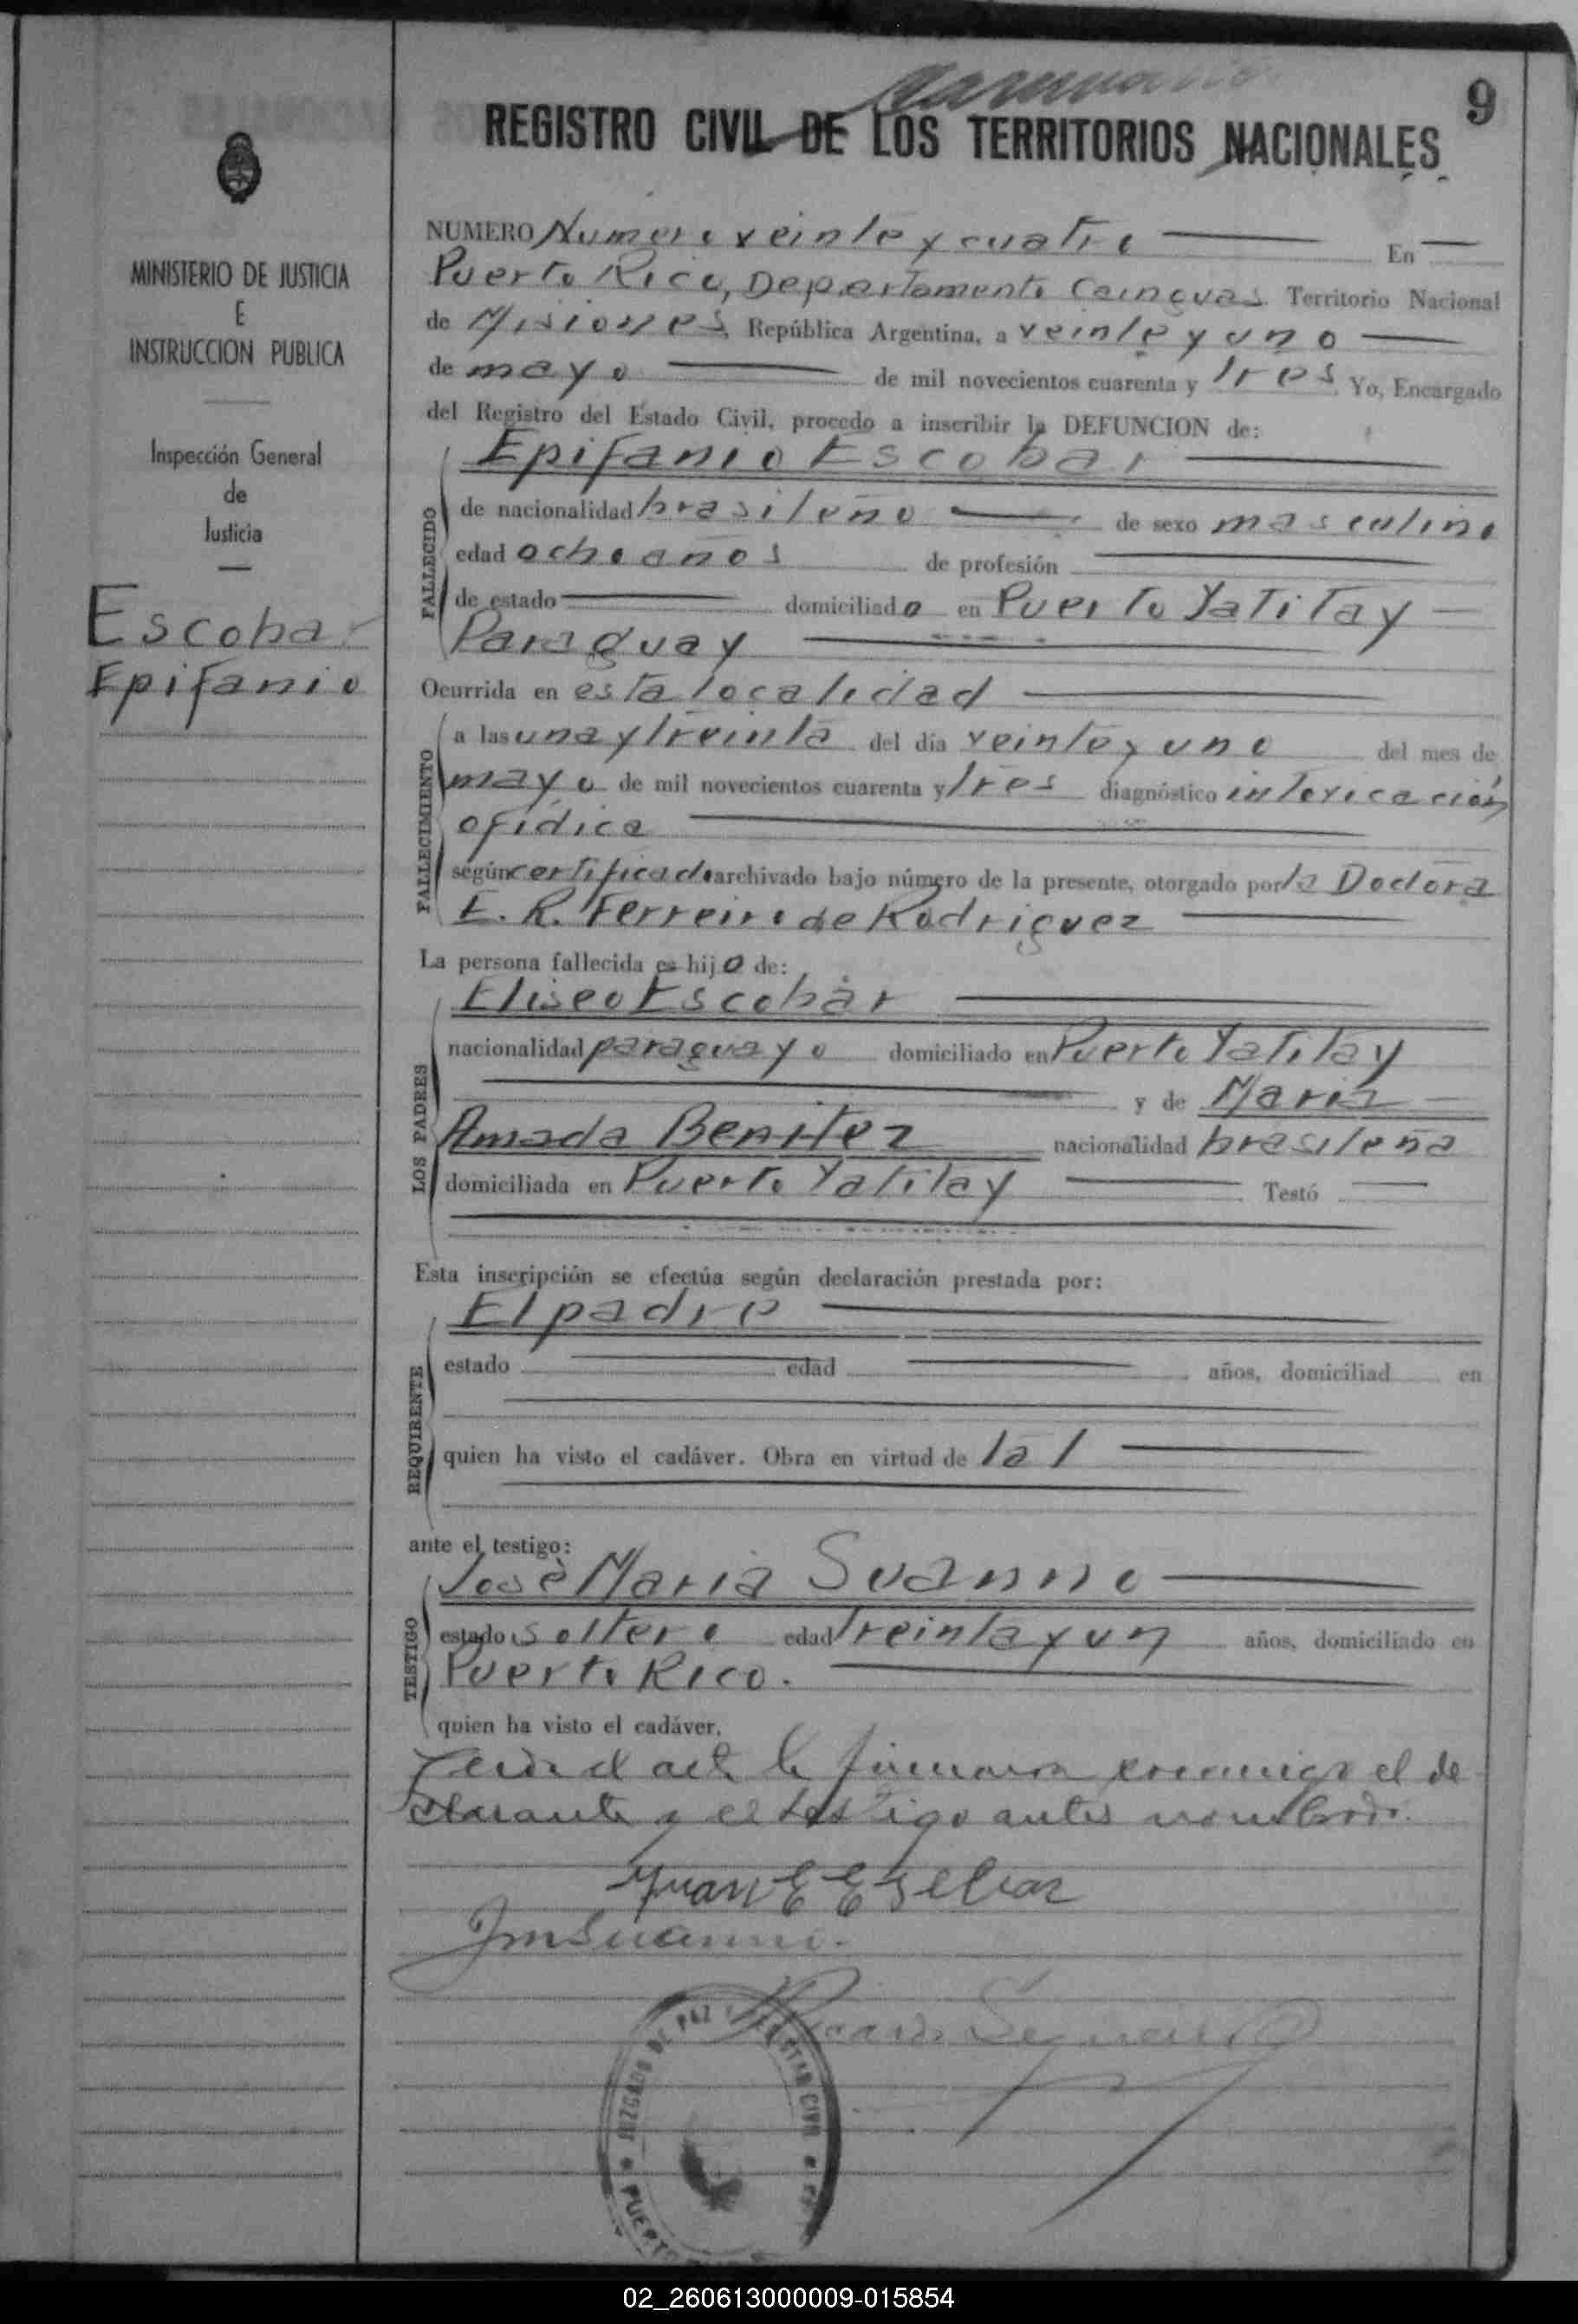 9
REGISTRO CIVIL DE LOS TERRITORIOS NACIONALES
MINISTERIO DE JUSTICIA
E
INSTRUCCION PUBLICA
Inspección General
de
Justicia
Escobar
Epifanio
NUMERO Numero veinte y cuatro En
Puerto Rico, Departamento Cainguas Territorio Nacional
de Misiones, República Argentina, a veinte y uno
de mayo de mil novecientos cuarenta y tres Yo, Encargado
del Registro del Estado Civil, procedo a inscribir la DEFUNCION de:
Epifanio Escobar
FALLECIDO
de nacionalidad brasileño de sexo masculino
edad ocho años de profesión
de estado domiciliado en Puerto Yatitay
Paraguay
Ocurrida en esta localidad
FALLECIMIENTO
a las una y treinta del día veinte y uno del mes de
mayo de mil novecientos cuarenta y tres diagnóstico intoxicación
ofídica
según certificado archivado bajo número de la presente, otorgado por la Doctora
E. R. Ferreiro de Rodriguez
La persona fallecida es hijo de:
Eliseo Escobar
LOS PADRES
nacionalidad paraguayo domiciliado en Puerto Yatitay
y de Maria
Amada Benitez nacionalidad brasileña
domiciliada en Puerto Yatitay Testó
Esta inscripción se efectúa según declaración prestada por:
El padre
REQUIRENTE
estado edad años, domiciliad en
quien ha visto el cadáver. Obra en virtud de tal
ante el testigo:
José Maria Suanno
TESTIGO
estado soltero edad treinta y un años, domiciliado en
Puerto Rico.
quien ha visto el cadáver.
Leida el acta la firmaron conmigo el de
clarante y el testigo antes nombrado.
JmSuanno.
JUZGADO DE PAZ Y ESTADO CIVIL
PUERTO
02_260613000009-015854